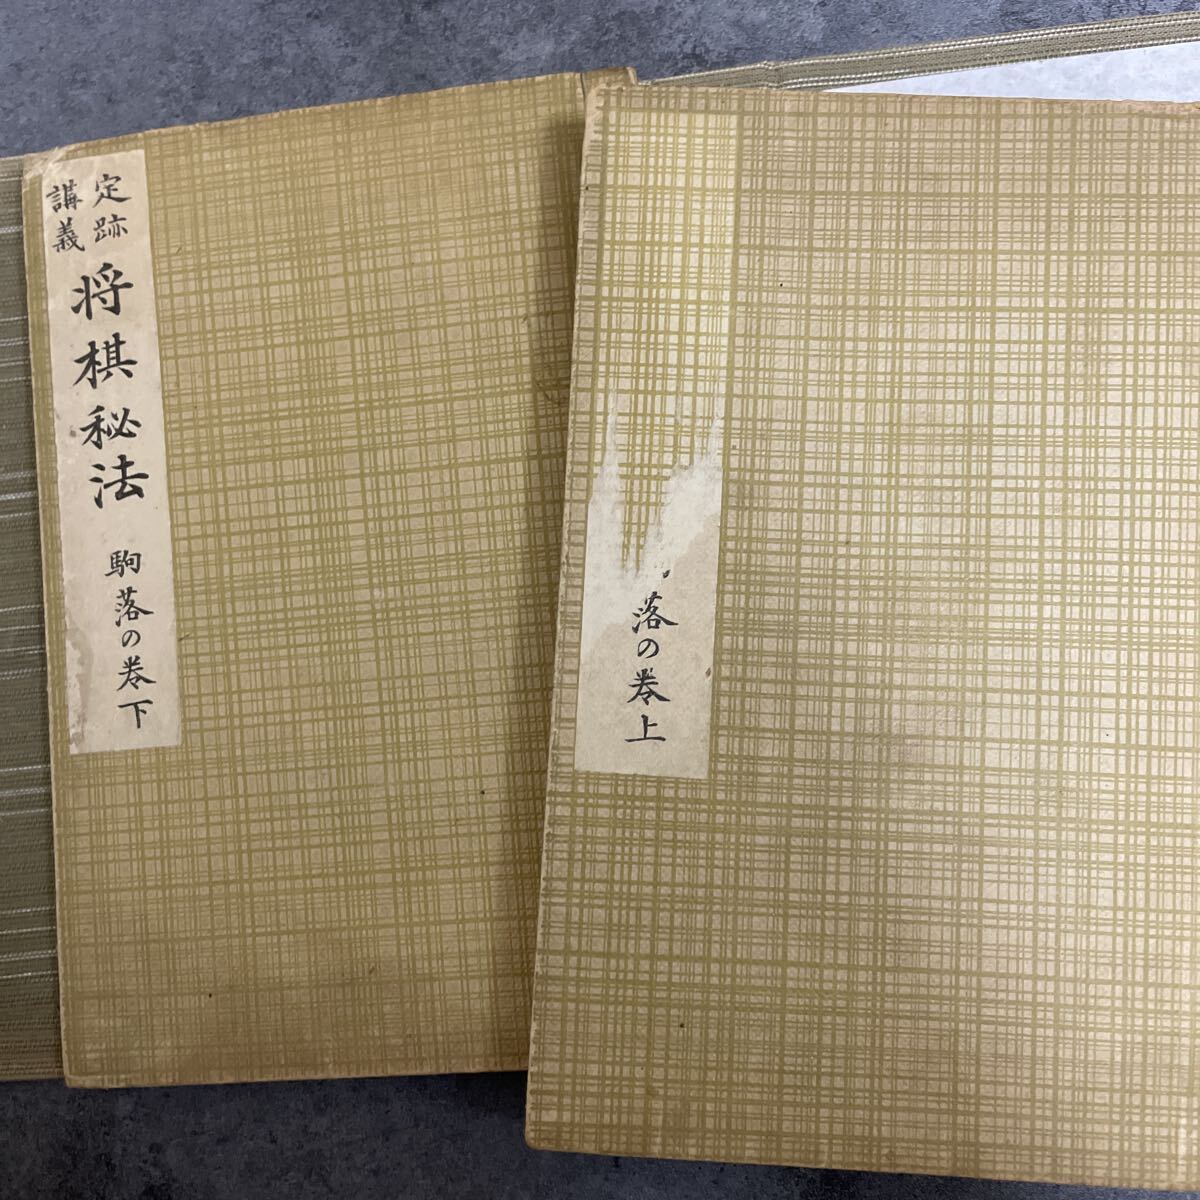 定跡
講義
将棋秘法
駒落の巻下
落の巻上